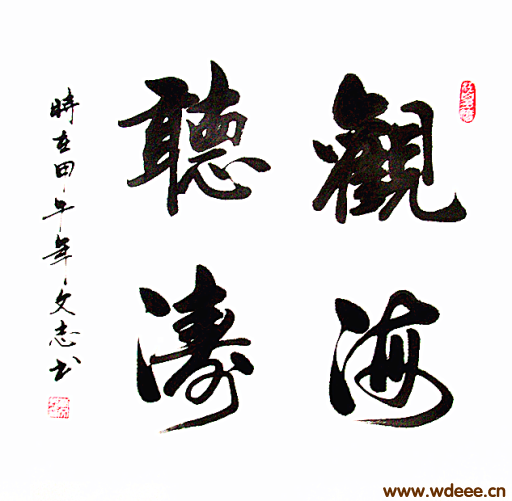 觀海
聽濤
時在甲午年文志书
www.wdeee.cn